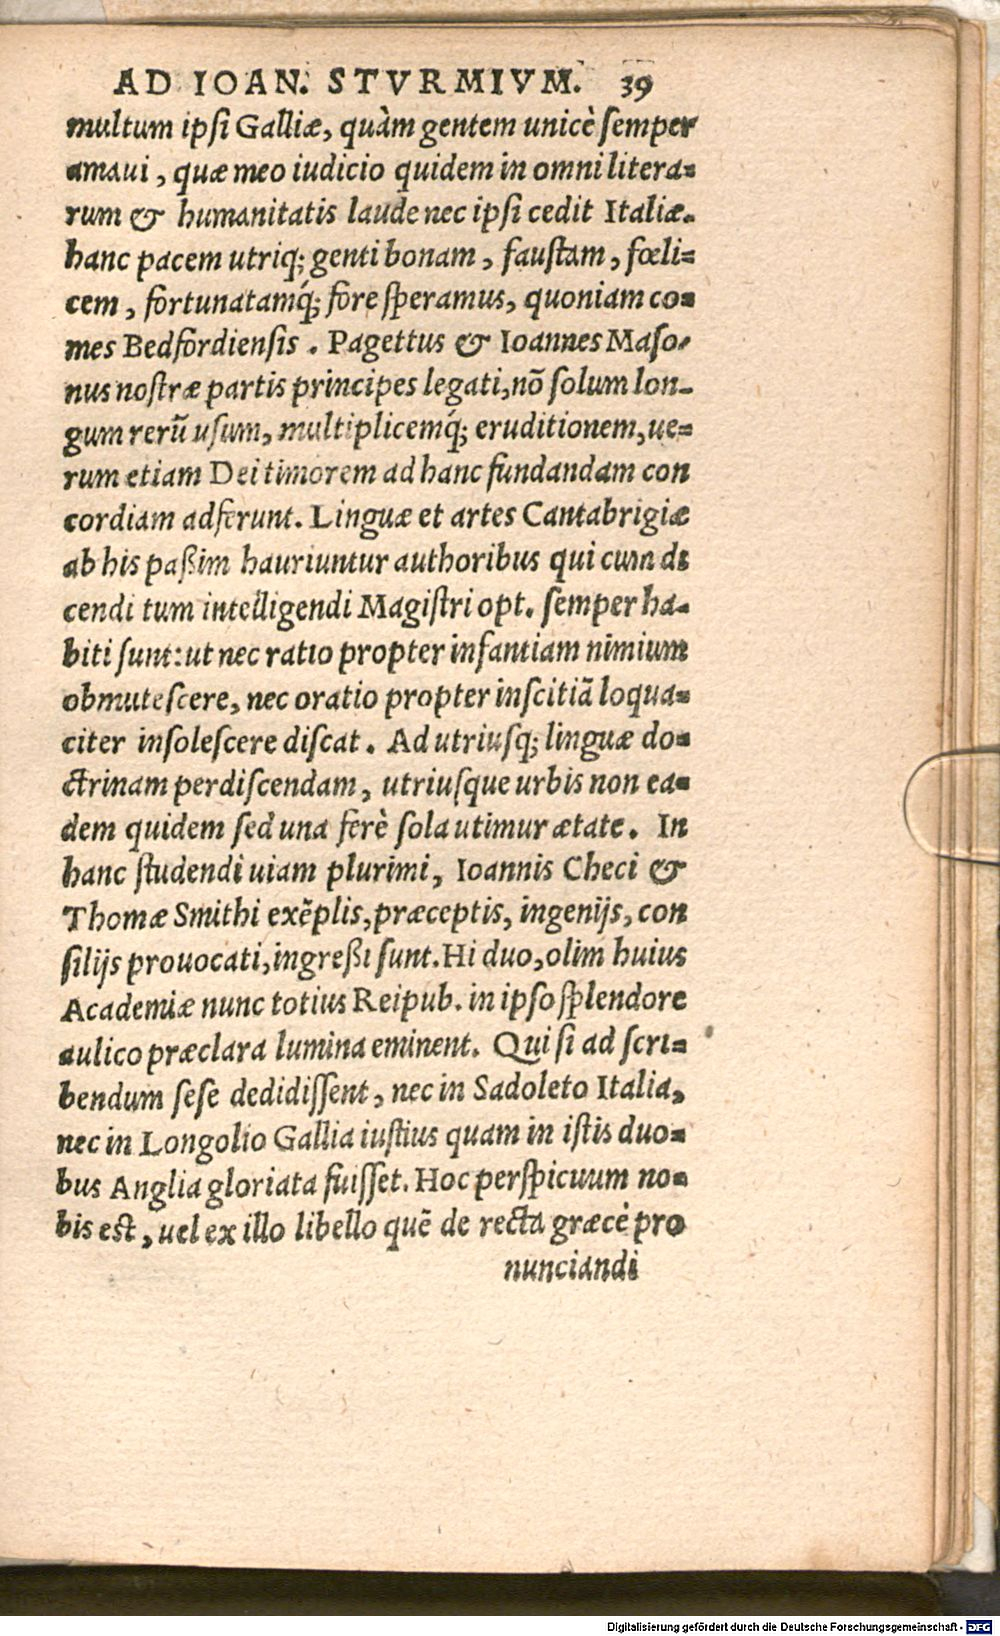 AD IOAN. STVRMIVM. 39
multum ipſi Galliæ, quàm gentem unicè ſemper
amaui, quæ meo iudicio quidem in omni litera-
rum & humanitatis laude nec ipſi cedit Italiæ.
hanc pacem utriq; genti bonam, fauſtam, fœli-
cem, fortunatamq́; fore ſperamus, quoniam co-
mes Bedfordienſis. Pagettus & Ioannes Maſo-
nus noſtræ partis principes legati, nõ ſolum lon-
gum rerũ uſum, multiplicemq́; eruditionem, ue-
rum etiam Dei timorem ad hanc fundandam con
cordiam adferunt. Linguæ et artes Cantabrigiæ
ab his paßim hauriuntur authoribus qui cum di
cendi tum intelligendi Magiſtri opt. ſemper ha-
biti ſunt: ut nec ratio propter infantiam nimium
obmuteſcere, nec oratio propter inſcitiã loqua-
citer inſoleſcere diſcat. Ad utriuſq; linguæ do-
ctrinam perdiſcendam, utriuſque urbis non ea-
dem quidem ſed una ferè ſola utimur ætate. In
hanc ſtudendi uiam plurimi, Ioannis Checi &
Thomæ Smithi exẽplis, præceptis, ingenijs, con
ſilijs prouocati, ingreßi ſunt. Hi duo, olim huius
Academiæ nunc totius Reipub. in ipſo ſplendore
aulico præclara lumina eminent. Qui ſi ad ſcri-
bendum ſeſe dedidiſſent, nec in Sadoleto Italia,
nec in Longolio Gallia iuſtius quam in iſtis duo-
bus Anglia gloriata fuiſſet. Hoc perſpicuum no-
bis eſt, uel ex illo libello quẽ de recta græcè pro
nunciandi
Digitalisierung gefördert durch die Deutsche Forschungsgemeinschaft - DFG